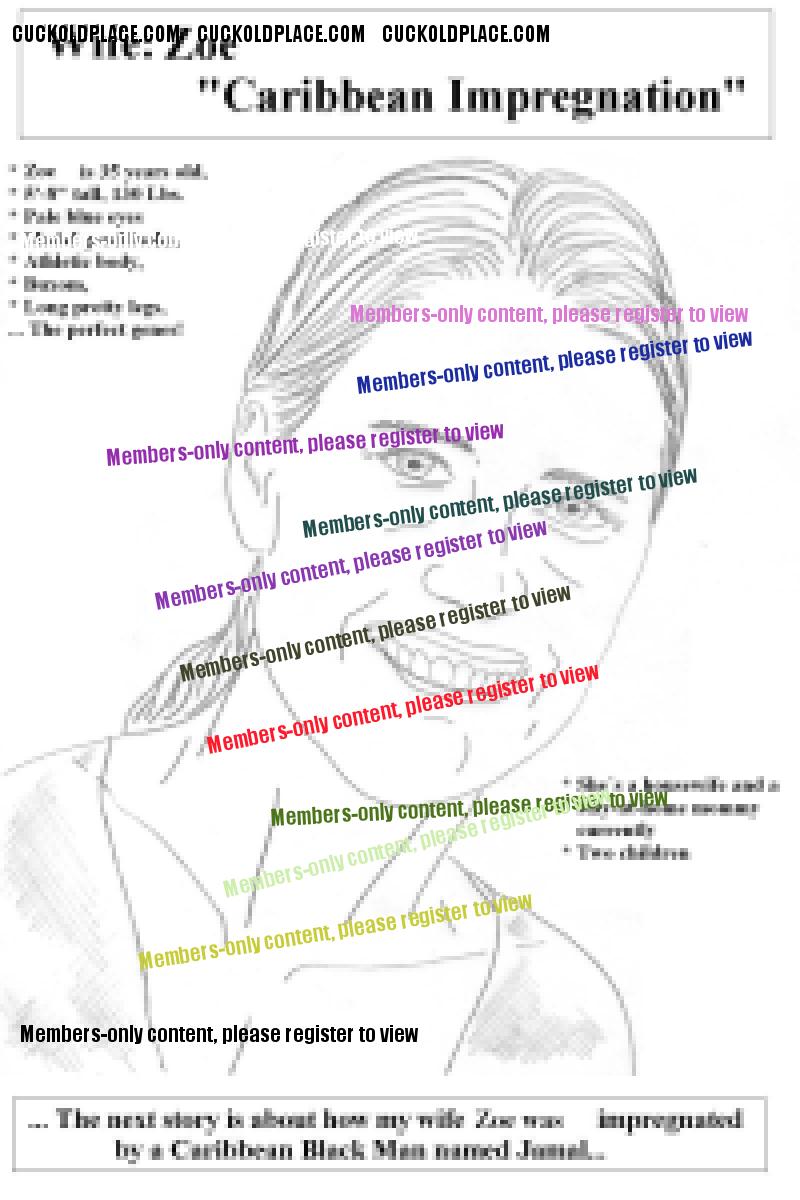 CUCKOLDPLACE.COM CUCKOLDPLACE.COM CUCKOLDPLACE.COM
Wife: Zoe
"Caribbean Impregnation"
* Zoe is 35 years old,
* 5'-8" tall, 130 Lbs.
* Pale blue eyes
Members-only con register to view
* Athletic body,
* Buxom,
* Long pretty legs,
... The perfect genes!
Members-only content, please register to view
Members-only content, please register to view
Members-only content, please register to view
Members-only content, please register to view
Members-only content, please register to view
Members-only content, please register to view
Members-only content, please register to view
* She's a housewife and a
mommy
Members-only content, please register to view
Members-only content, please register to view
currently
* Two children
Members-only content, please register to view
Members-only content, please register to view
... The next story is about how my wife Zoe was impregnated
by a Caribbean Black Man named Jamal...